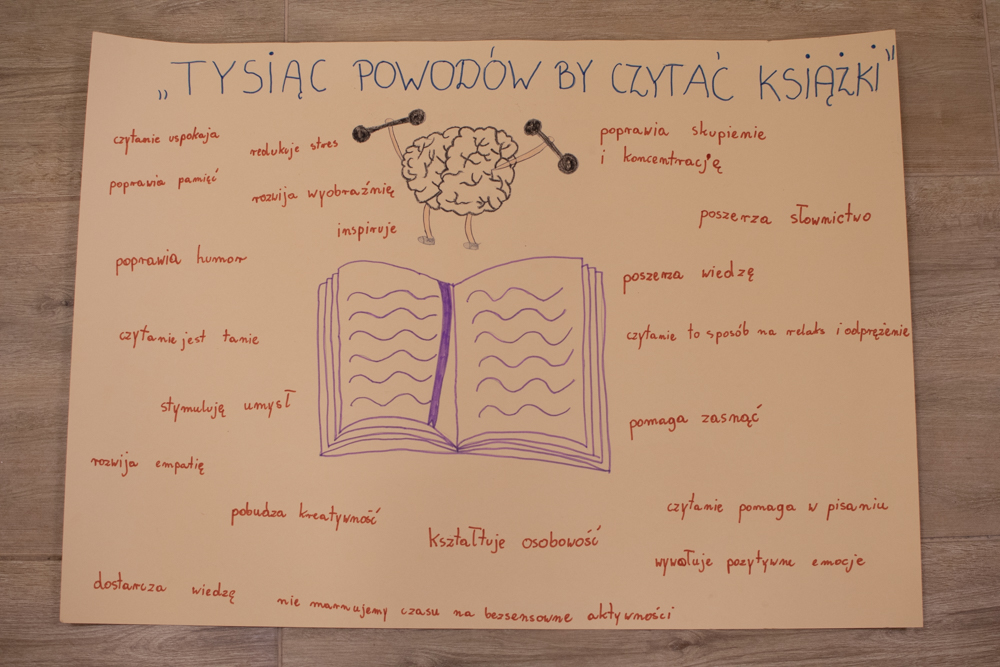 „TYSIĄC POWODÓW BY CZYTAĆ KSIĄŻKI"
czytanie uspokaja
redukuje stres
poprawia pamięć
rozwija wyobraźnię
inspiruje
poprawia humor
czytanie jest tanie
stymuluję umysł
rozwija empatię
pobudza kreatywność
dostarcza wiedzę
poprawia skupienie
i koncentrację
poszerza słownictwo
poszerza wiedzę
czytanie to sposób na relaks i odprężenie
pomaga zasnąć
czytanie pomaga w pisaniu
kształtuje osobowość
wywołuje pozytywne emocje
nie marnujemy czasu na bezsensowne aktywności